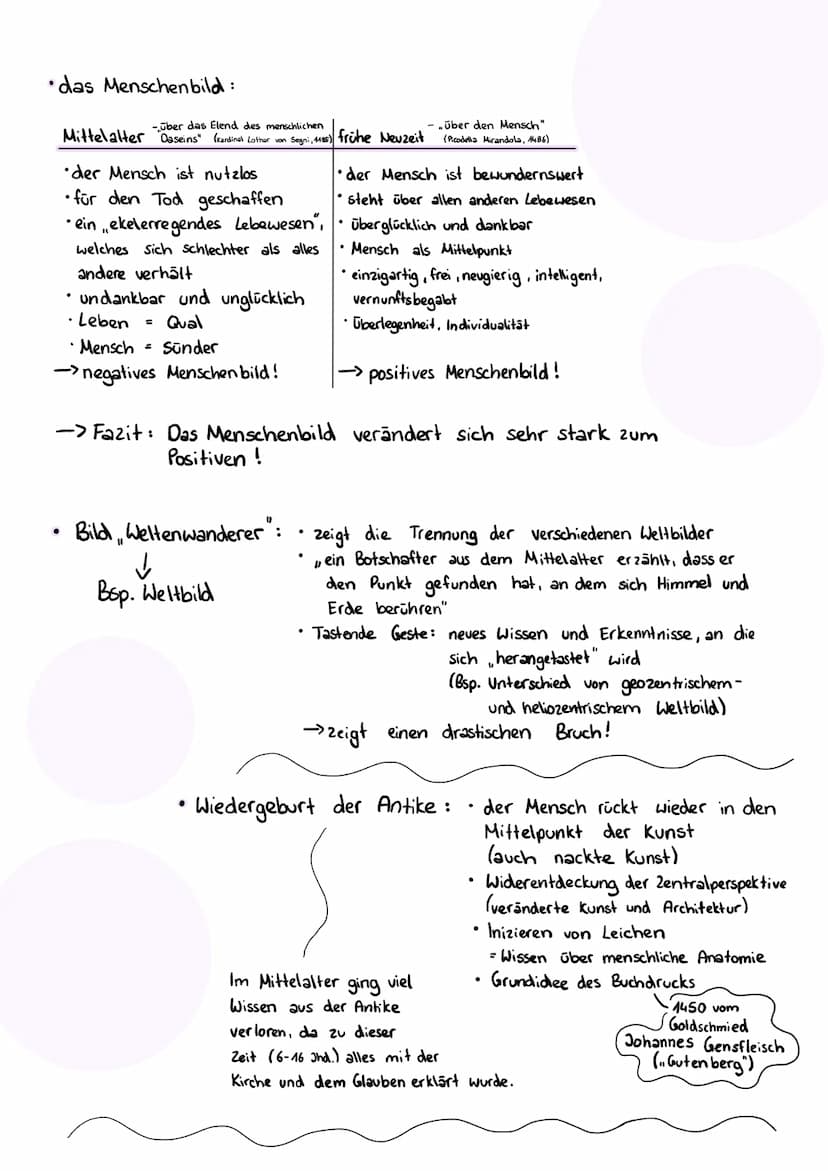 • das Menschenbild :
Mittelalter - „über das Elend des menschlichen
Daseins" (Kardinal Lothar von Segni, 1185)
• der Mensch ist nutzlos
• für den Tod geschaffen
• ein „ekelerregendes Lebewesen",
welches sich schlechter als alles
andere verhält
• undankbar und unglücklich
• Leben = Qual
• Mensch = Sünder
→ negatives Menschenbild!
frühe Neuzeit - „über den Mensch"
(Picodella Mirandola, 1486)
• der Mensch ist bewundernswert
• steht über allen anderen Lebewesen
• überglücklich und dankbar
• Mensch als Mittelpunkt
• einzigartig, frei, neugierig, intelligent,
vernunftsbegabt
• Überlegenheit, Individualität
→ positives Menschenbild!
→ Fazit: Das Menschenbild verändert sich sehr stark zum
Positiven!
• Bild „Weltenwanderer":
↓
Bsp. Weltbild
• zeigt die Trennung der verschiedenen Weltbilder
• „ein Botschafter aus dem Mittelalter erzählt, dass er
den Punkt gefunden hat, an dem sich Himmel und
Erde berühren"
• Tastende Geste: neues Wissen und Erkenntnisse, an die
sich „herangetastet" wird
(Bsp. Unterschied von geozentrischem-
und heliozentrischem Weltbild)
→ zeigt einen drastischen Bruch!
• Wiedergeburt der Antike :
• der Mensch rückt wieder in den
Mittelpunkt der Kunst
(auch nackte Kunst)
• Widerentdeckung der Zentralperspektive
(veränderte Kunst und Architektur)
• Inizieren von Leichen
= Wissen über menschliche Anatomie
• Grundidee des Buchdrucks
1450 vom
Goldschmied
Johannes Gensfleisch
(„Gutenberg")
Im Mittelalter ging viel
Wissen aus der Antike
verloren, da zu dieser
Zeit (6-16 Jhd.) alles mit der
Kirche und dem Glauben erklärt wurde.